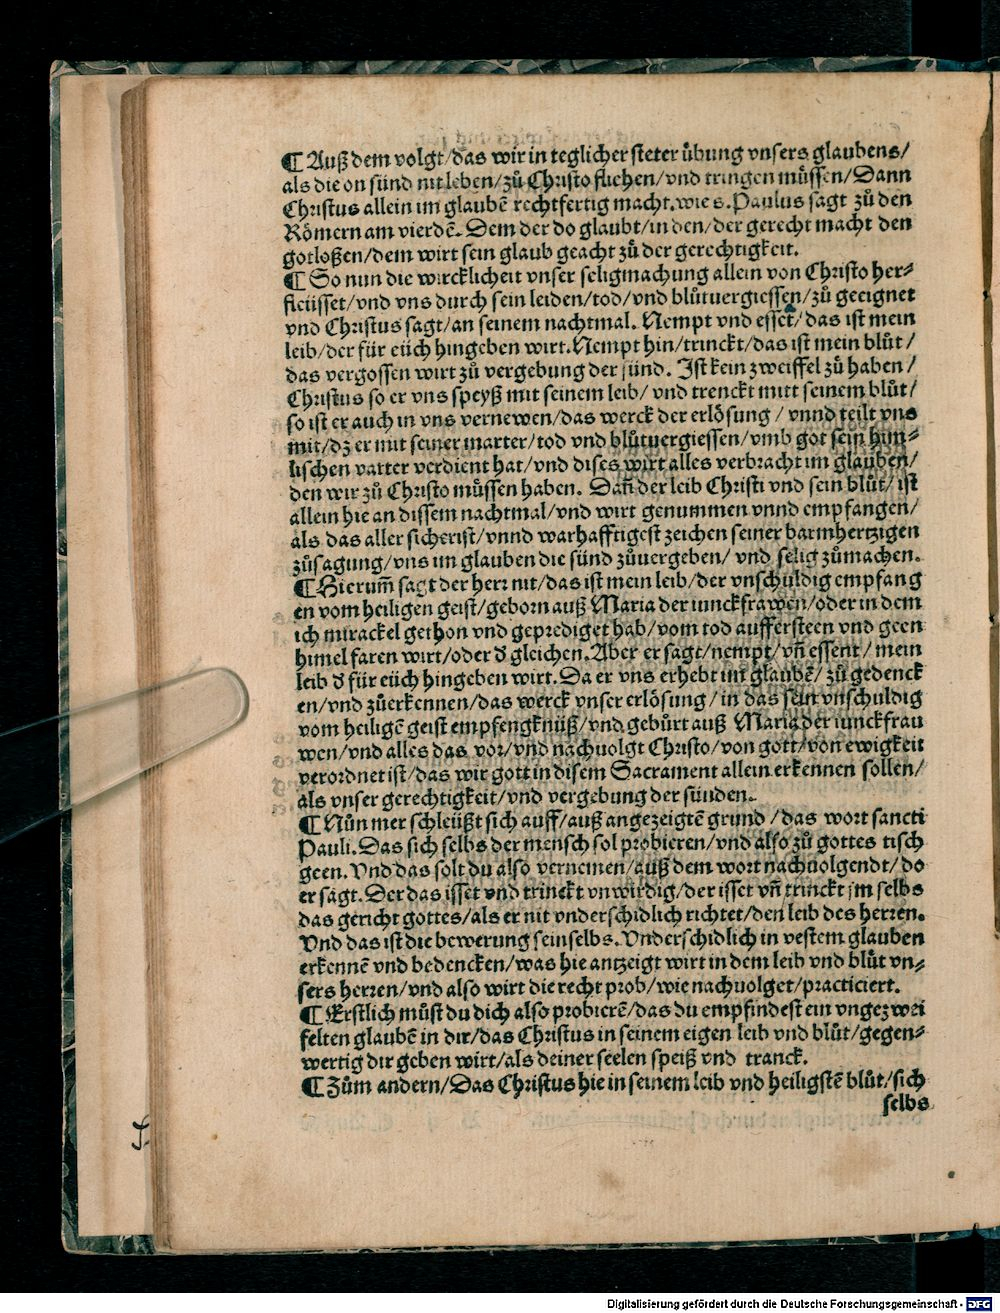 ¶ Auß dem volgt/das wir in teglicher steter übung vnsers glaubens/
als die on sünd nit leben/zů Christo fliehen/vnd tringen müssen/Dann
Christus allein im glaubē rechtfertig macht.wie s.Paulus sagt zů den
Römern am vierdē. Dem der do glaubt/in den/der gerecht macht den
gotloßen/dem wirt sein glaub geacht zů der gerechtigkeit.
¶ So nun die wircklicheit vnser seligmachung allein von Christo her⸗
fleüsset/vnd vns durch sein leiden/tod/vnd blůtuergiessen/zů geeignet
vnd Christus sagt/an seinem nachtmal. Nempt vnd esset/das ist mein
leib/der für eüch hingeben wirt.Nempt hin/trinckt/das ist mein blůt/
das vergossen wirt zů vergebung der sünd. Ist kein zweiffel zů haben/
Christus so er vns speyß mit seinem leib/vnd trenckt mitt seinem blůt/
so ist er auch in vns vernewen/das werck der erlösung/vnnd teilt vns
mit/dz er mit seiner marter/tod vnd blůtuergiessen/vmb got sein him⸗
lischen vatter verdient hat/vnd dises wirt alles verbracht im glauben/
den wir zů Christo müssen haben. Dañ der leib Christi vnd sein blůt/ist
allein hie an dissem nachtmal/vnd wirt genummen vnnd empfangen/
als das aller sicherist/vnnd warhafftigest zeichen seiner barmhertzigen
zůsagung/vns im glauben die sünd zůuergeben/vnd selig zůmachen.
¶Hierum̄ sagt der herꝛ nit/das ist mein leib/der vnschuldig empfang
en vom heiligen geist/geborn auß Maria der iunckfrawen/oder in dem
ich mirackel gethon vnd geprediget hab/vom tod aufferstecn vnd geen
himel faren wirt/oder d̄ gleichen.Aber er sagt/nempt/vn̄ essent/mein
leib d̄ für eüch hingeben wirt.Da er vns erhebt im glaubē/zů gedenck
en/vnd zůerkennen/das werck vnser erlösung/in das sein vnschuldig
vom heiligē geist empfengknüß/vnd gebůrt auß Maria der iunckfrau
wen/vnd alles das vor/vnd nachuolgt Christo/von gott/von ewigkeit
verordnet ist/das wir gott in disem Sacrament allein erkennen sollen/
als vnser gerechtigkeit/vnd vergebung der sünden.
¶Nůn mer schleüßt sich auff/auß angezeigtē grund/das wort sancti
Pauli.Das sich selbs der mensch sol probieren/vnd also zů gottes tisch
geen.Vnd das solt du also vernemen/auß dem wort nachuolgendt/do
er sagt.Der das isset vnd trinckt vnwirdig/der isset vn̄ trinckt jm selbs
das gericht gottes/als er nit vnderschidlich richtet/den leib des herꝛen.
Vnd das ist die bewerung seinselbs.Vnderschidlich in vestem glauben
erkennē vnd bedencken/was hie antzeigt wirt in dem leib vnd blůt vn⸗
sers herꝛen/vnd also wirt die recht prob/wie nachuolget/practiciert.
¶Erstlich můst du dich also probierē/das du empfindest ein vngezwei
felten glaubē in dir/das Christus in seinem eigen leib vnd blůt/gegen⸗
wertig dir geben wirt/als deiner seelen speiß vnd tranck.
¶Zům andern/Das Christus hie in seinem leib vnd heiligstē blůt/sich
selbs
Digitalisierung gefördert durch die Deutsche Forschungsgemeinschaft - DFG